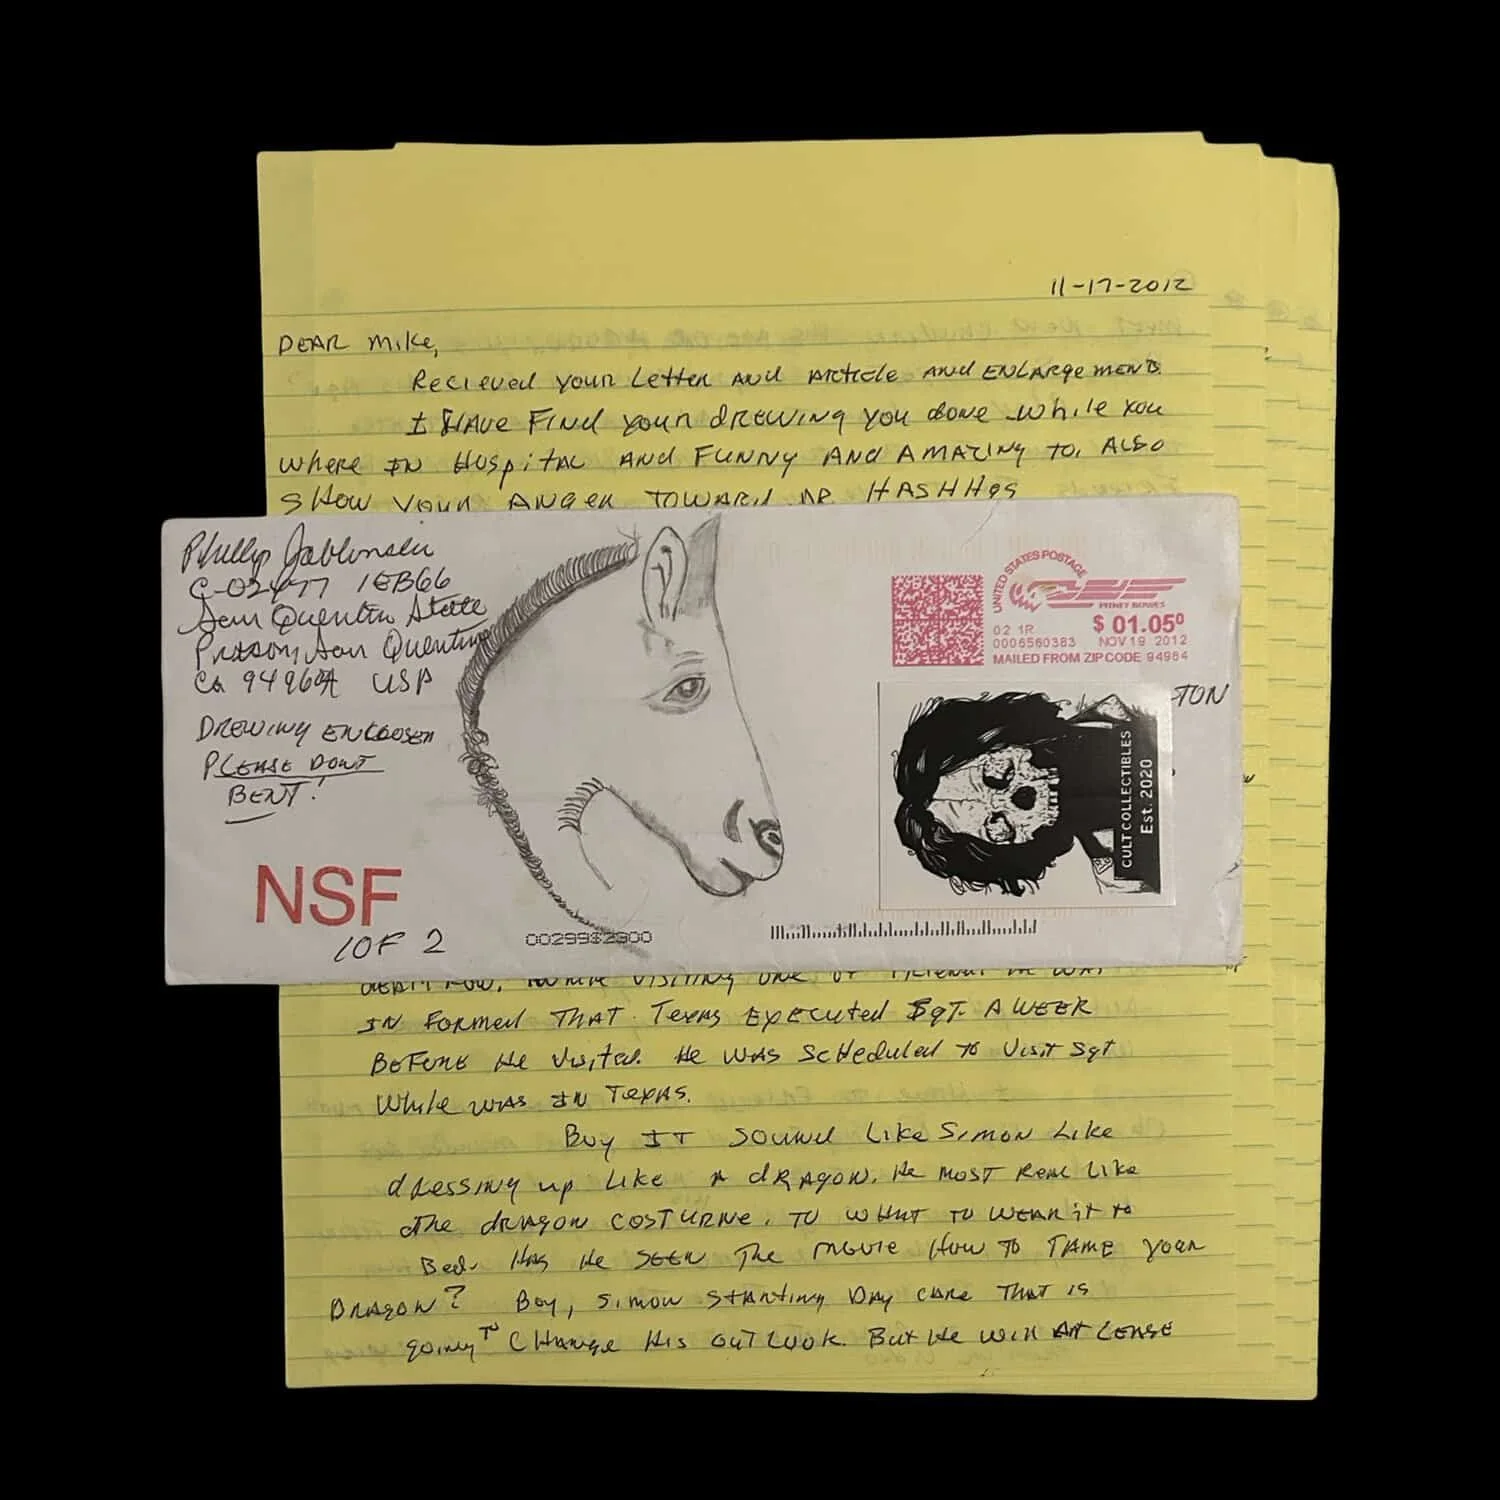 11-17-2012
DEAR Mike,
Recieved your Letter AND Article AND ENLARgements.
I HAve Find your drewing you done while you
where IN Hospital AND Funny AND AmAzing to. ALSO
SHow your Anger TowArd DR HASHHgs
Phillip Jablonski
C-02477 1EB66
San Quentin State
Prison San Quentin
Ca 94964 USP
DREWING ENCLOSEN
PLEASE DONT
BENT!
NSF
1 OF 2
0029932900
UNITED STATES POSTAGE
PITNEY BOWES
02 1R
$ 01.05⁰
0006560383 NOV 19 2012
MAILED FROM ZIP CODE 94964
TON
CULT COLLECTIBLES
Est. 2020
visiting one of
IN Formed THAT Texas EXECUTED SgT. A WEEK
BeFore He Visited. He was Scheduled to Visit Sgt
While was IN Texas.
Boy IT Sound Like Simon Like
dressing up Like A dRAgon. He most Real Like
The dragon COSTURNE. TO WHAT TO WEAR it to
Bed. HAs He SEEN The movie How TO TAME your
DRAgon? Boy, Simon STARTing DAy CARE THAT is
going TO CHAnge His OUTLOOK. But He will AT LEASE